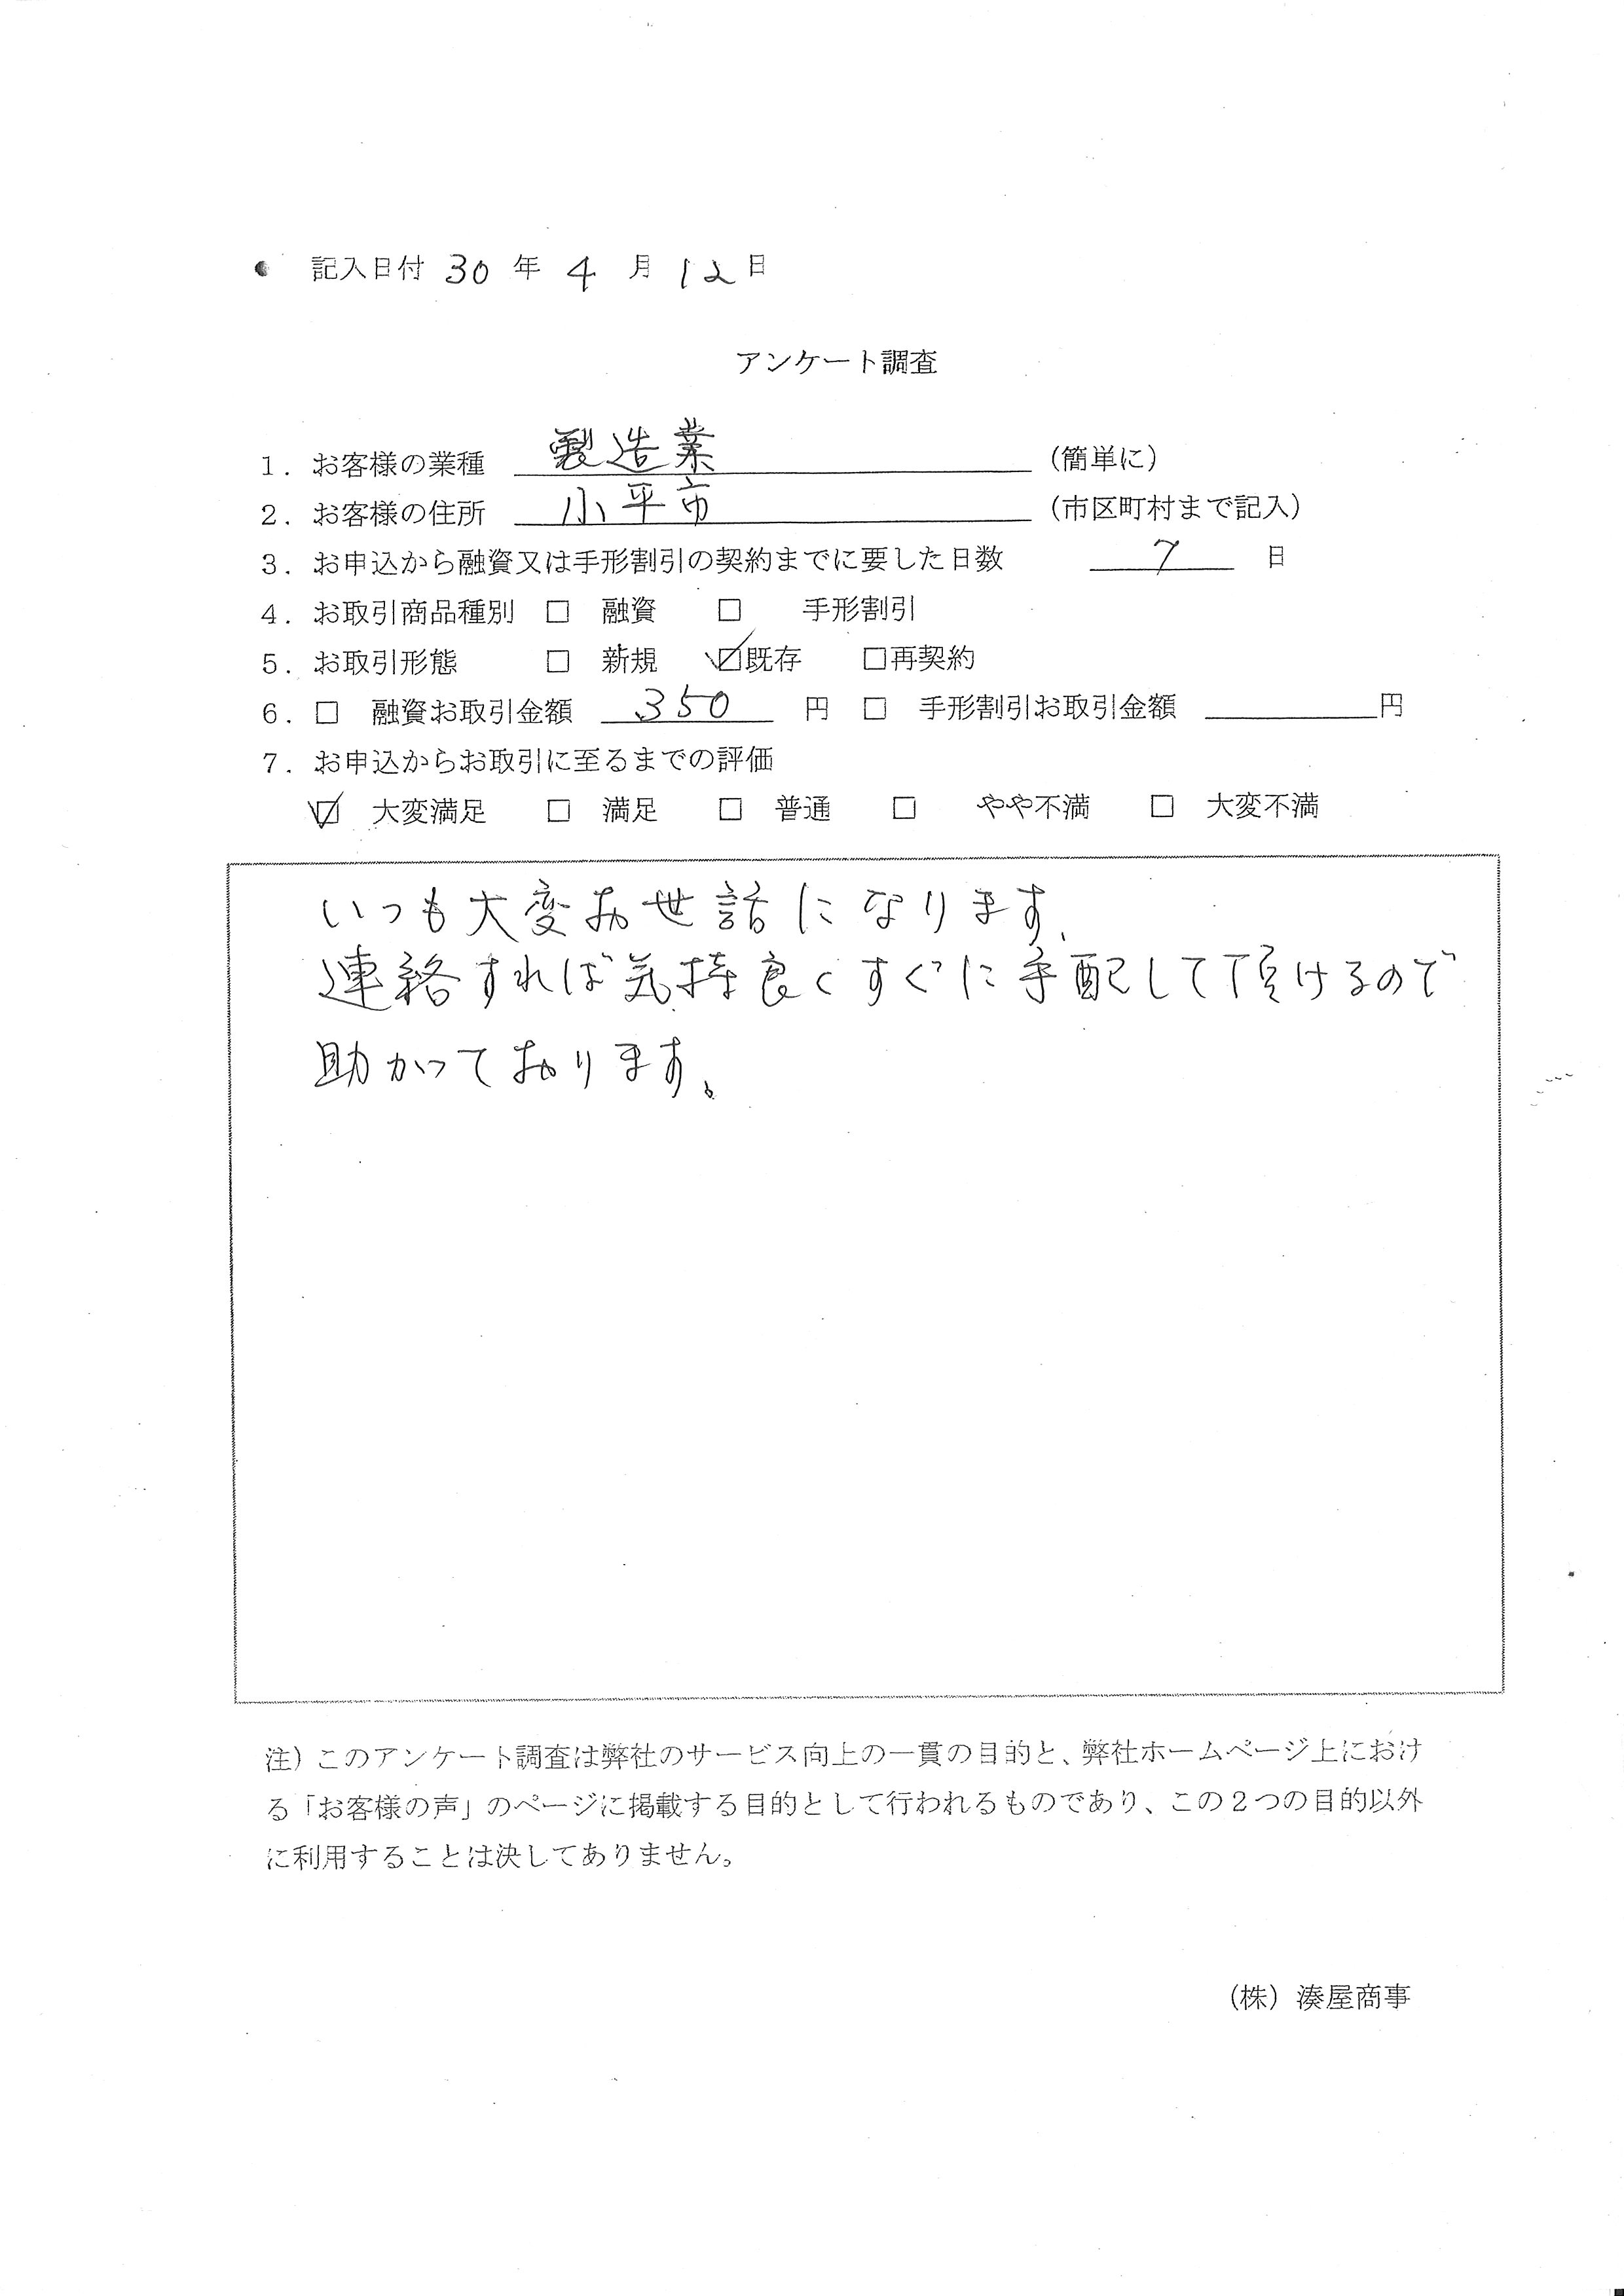 記入日付 30 年 4 月 12 日
アンケート調査
1．お客様の業種 製造業 （簡単に）
2．お客様の住所 小平市 （市区町村まで記入）
3．お申込から融資又は手形割引の契約までに要した日数 7 日
4．お取引商品種別 □ 融資 □ 手形割引
5．お取引形態 □ 新規 ☑既存 □再契約
6．□ 融資お取引金額 350 円 □ 手形割引お取引金額 円
7．お申込からお取引に至るまでの評価
☑ 大変満足 □ 満足 □ 普通 □ やや不満 □ 大変不満
いつも大変お世話になります。
連絡すれば気持良くすぐに手配して頂けるので
助かっております。
注）このアンケート調査は弊社のサービス向上の一貫の目的と、弊社ホームページ上におけ
る「お客様の声」のページに掲載する目的として行われるものであり、この２つの目的以外
に利用することは決してありません。
（株）湊屋商事